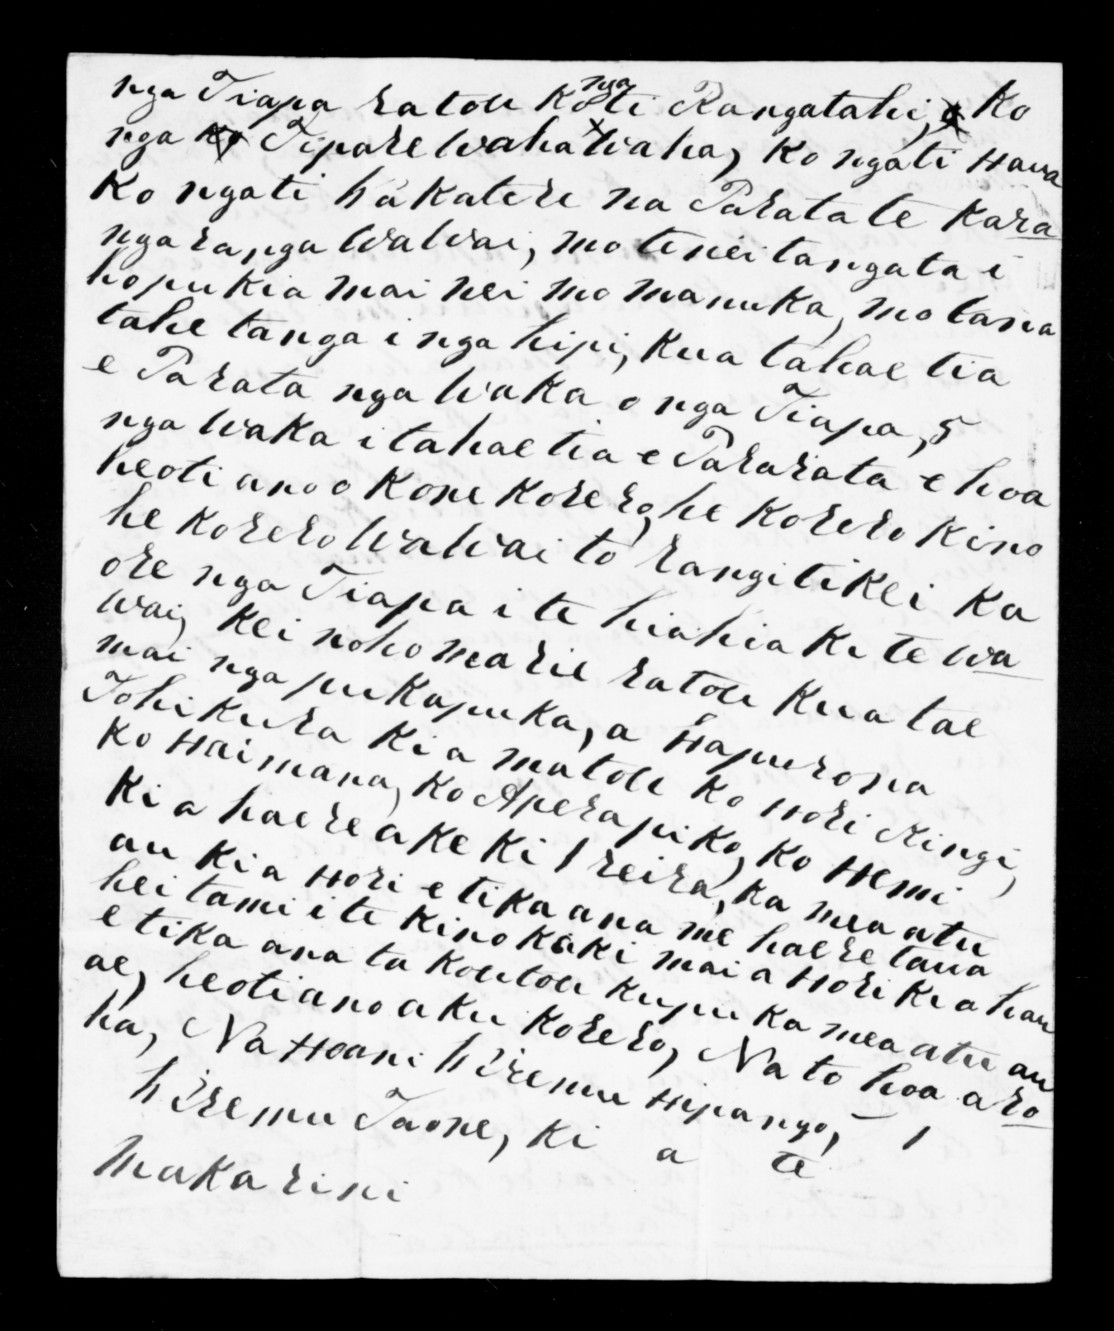 nga Tiapa ratou Ko nga ti Rangatahi, Ko
nga Ko Tipare Wahawaha, Ko ngati Hawa
Ko ngati hakatere na Parata te Kara
nga ranga Walwai, mo tenei tangata i
hopukia mai nei mo manuka, mo tana
tahe tanga i nga hipi, Kua tahae tia
e Parata nga Waka o nga Tiapa, 5
nga Waka i tahae tia e Pararata e hoa
heoti ano o Kone Korero, he Korero Kino
he Korero Walwai to rangitikei Ka
ore nga Tiapa i te hiahia Ki te wa
wai, Kei noho marie ratou Kua tae
mai nga pukapuka, a Hapurona
Tohikura Ki a matou Ko Hori Kingi,
Ko Haimana, Ko Aperapiko, Ko Hemi
Ki a haere ake Ki reira, ka mea atu
au Ki a Hori e tika ana me haere taua
hei tami i te Kino Kaki mai a Hori Ki a hau
e tika ana ta Koutou Kupu Ka mea atu au
ae, heoti ano aku Korero, Na to hoa aro
ha, Na Hoani Wiremu Hipango,
Wiremu Taone, Ki a te
Makarini